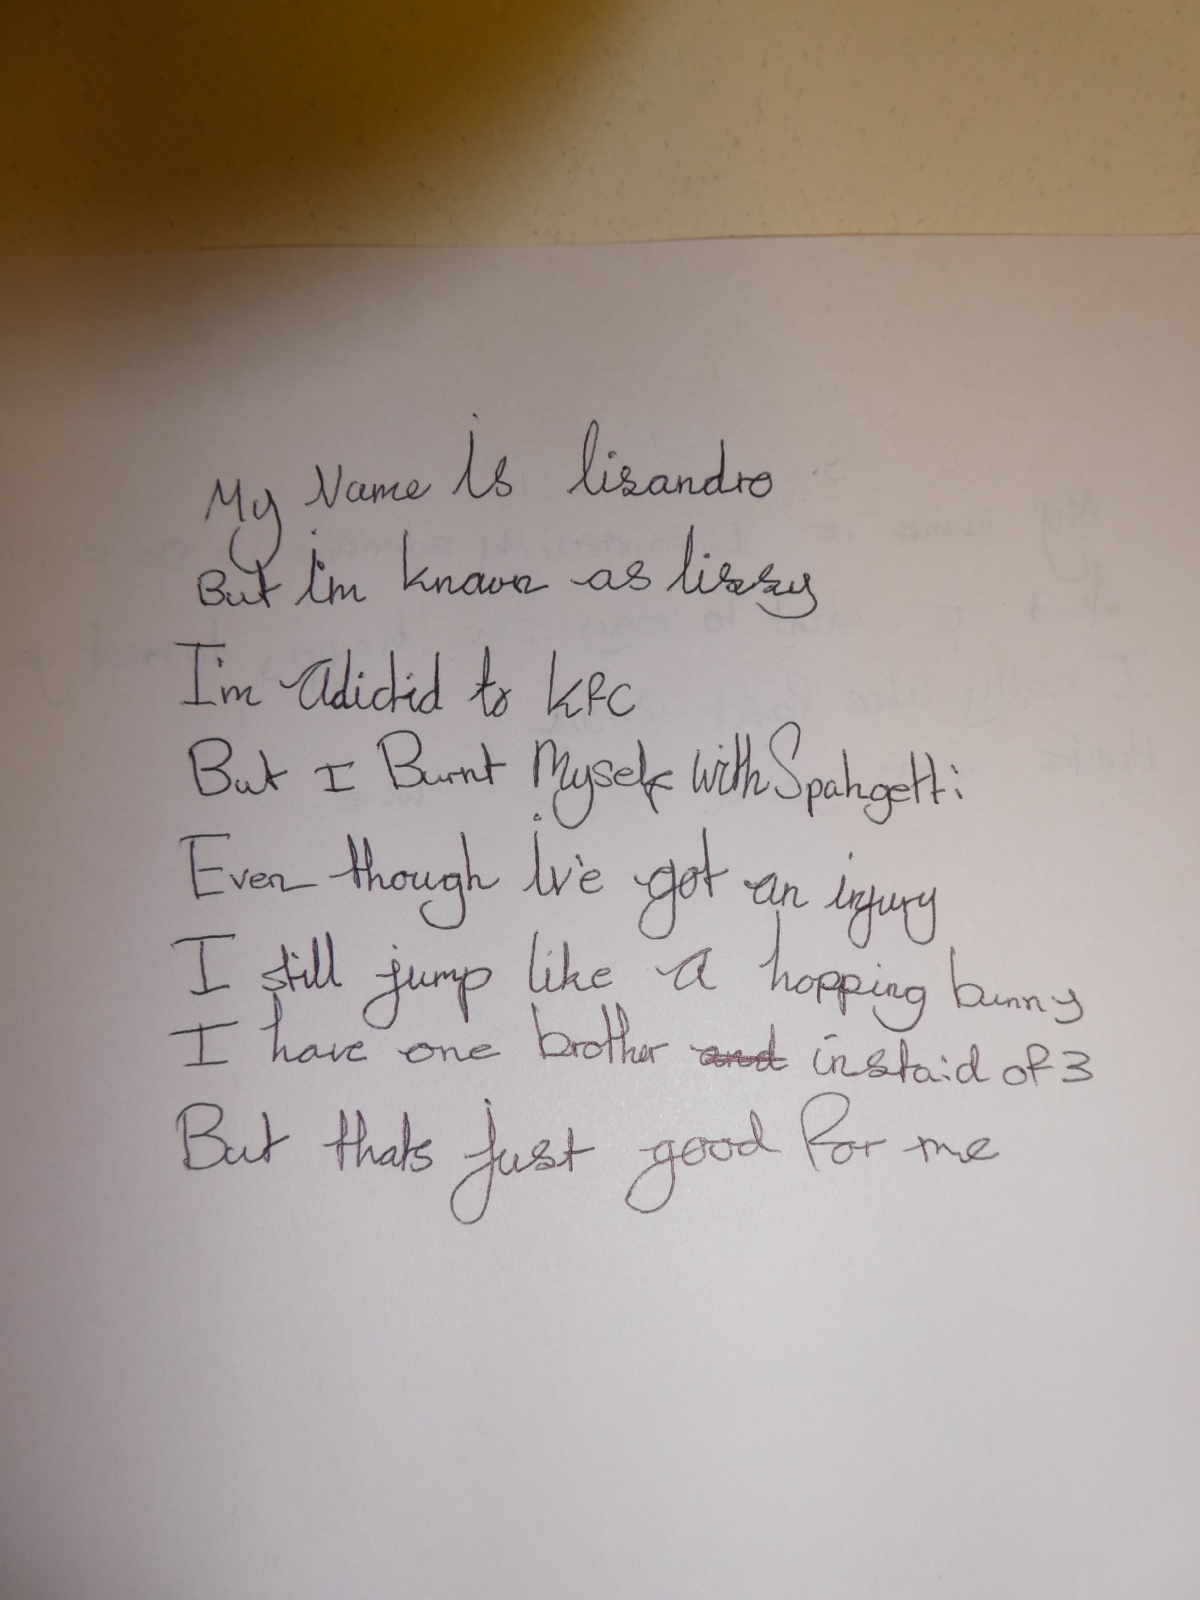 My Name is lisandro
But i'm known as lizzy
I'm Adictid to KFC
But I Burnt Myself with Spahgetti
Even though iv'e got an injury
I still jump like a hopping bunny
I have one brother and instaid of 3
But thats just good for me